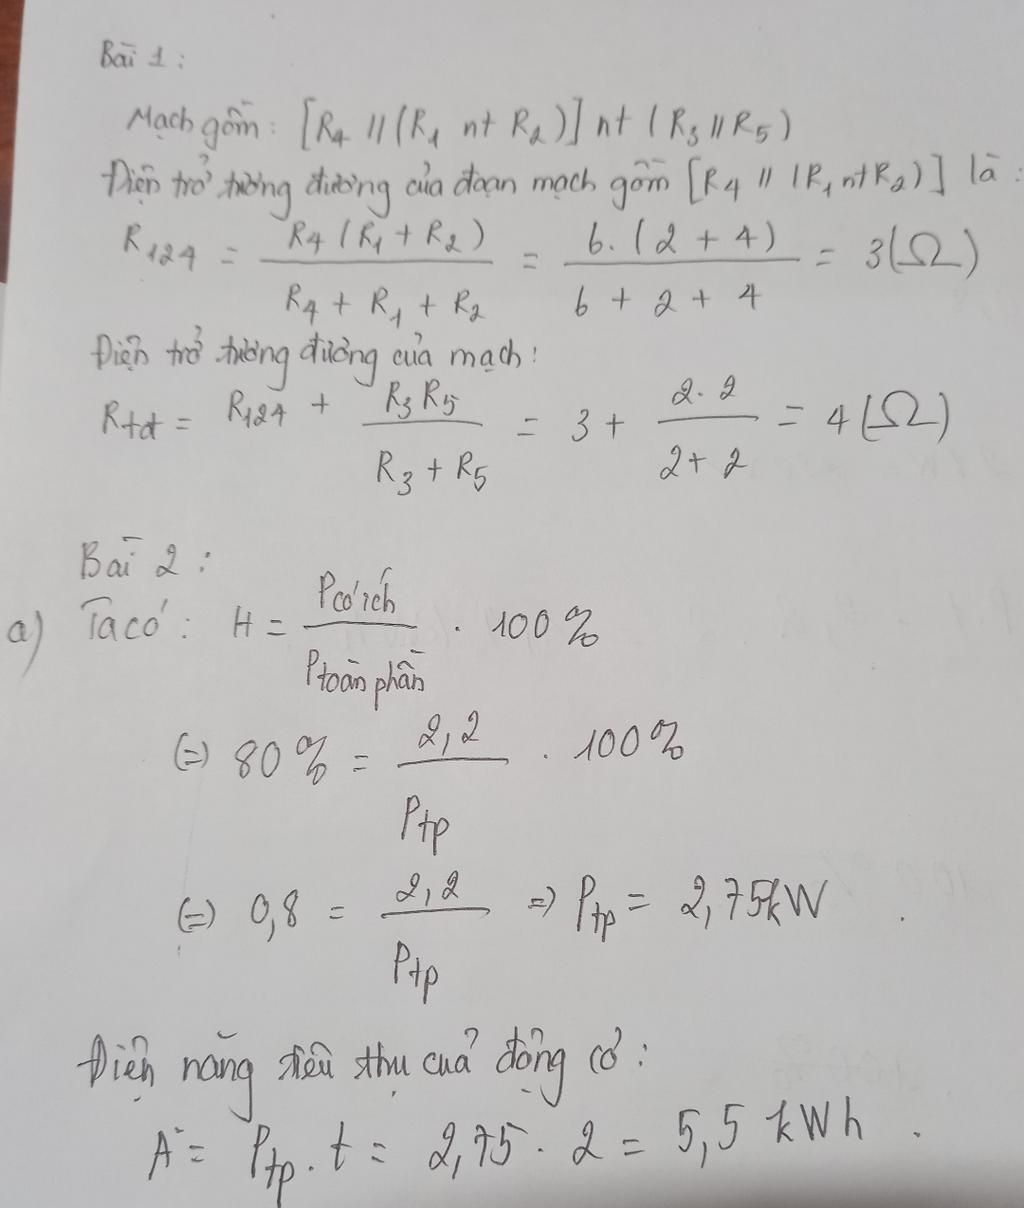 Bài 1 :
Mạch gồm: [R4 // (R1 nt R2)] nt (R3 // R5)
Điện trở tương đương của đoạn mạch gồm [R4 // (R1 nt R2)] là :
R124 = R4 (R1 + R2) / (R4 + R1 + R2) = 6. (2 + 4) / (6 + 2 + 4) = 3(Ω)
Điện trở tương đương của mạch :
Rtđ = R124 + R3 R5 / (R3 + R5) = 3 + 2. 2 / (2 + 2) = 4(Ω)
Bài 2 :
a) Ta có : H = Pcó ích / Ptoàn phần . 100 %
(=) 80 % = 2,2 / Ptp . 100 %
(=) 0,8 = 2,2 / Ptp => Ptp = 2,75kW .
Điện năng tiêu thụ của động cơ :
A = Ptp . t = 2,75 . 2 = 5,5 kWh .